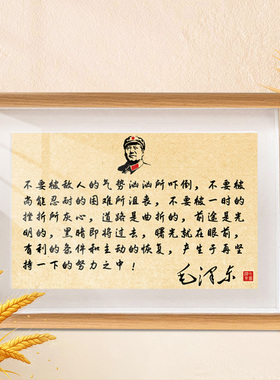 不要被敌人的气势汹汹所吓倒，不要被
尚能忍耐的困难所沮丧，不要被一时的
挫折所灰心，道路是曲折的，前途是光
明的，黑暗即将过去，曙光就在眼前，
有利的条件和主动的恢复，产生于再坚
持一下的努力之中！
毛泽东